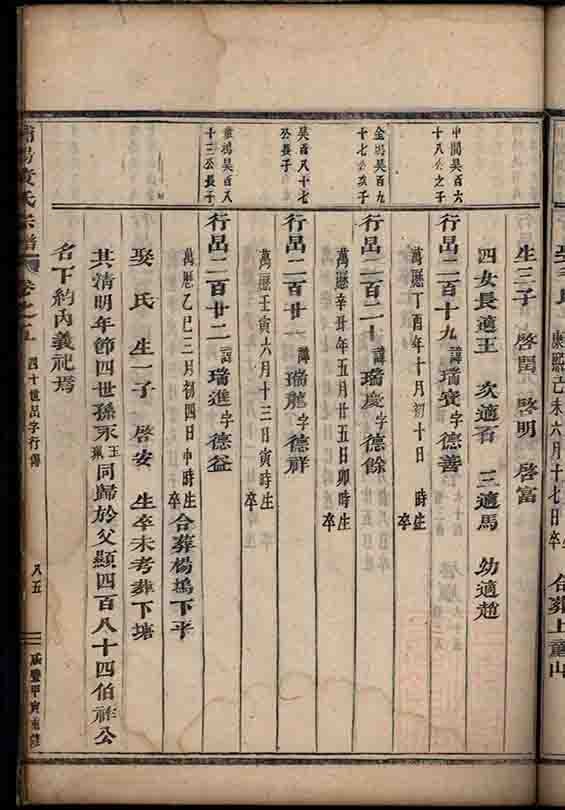 娶
氏
康熙
辛未六月十七日卒
合葬上董山
生三子 啓閏 啓明 啓富
四女長適王 次適石 三適馬 幼適趙
中閣昊百六
十八公之子
行昷二百十九 諱瑞寶字德善
萬曆丁酉年十月初十日 時生
卒
金塢昊百九
十七公次子
行昷二百二十 諱瑞慶字德餘
萬曆辛丑年五月廿五日卯時生
卒
昊百八十七
公長子
行昷二百廿一 諱瑞龍字德祥
萬曆壬寅六月十三日寅時生
卒
昊百八
十三公長子
行昷二百廿二 諱瑞進字德益
萬曆乙巳三月初四日申時生
卒
合葬楊塢下平
娶 氏 生一子 啓安 生卒未考葬下塘
其清明年節四世孫永
同歸於父顯四百八十四伯祚公
名下約丙義祀焉
氏宗譜 卷之五 四十世昷字行傳 八五 咸豐甲寅重修